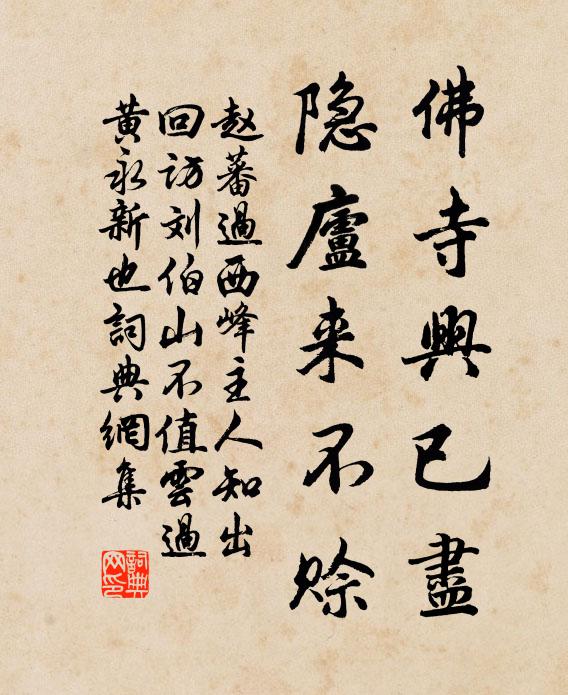 佛寺興已盡
隐廬来不赊
赵蕃過西峰主人知出
回访刘伯山不值雲過
黄永新也詞典網集
詞典
网印